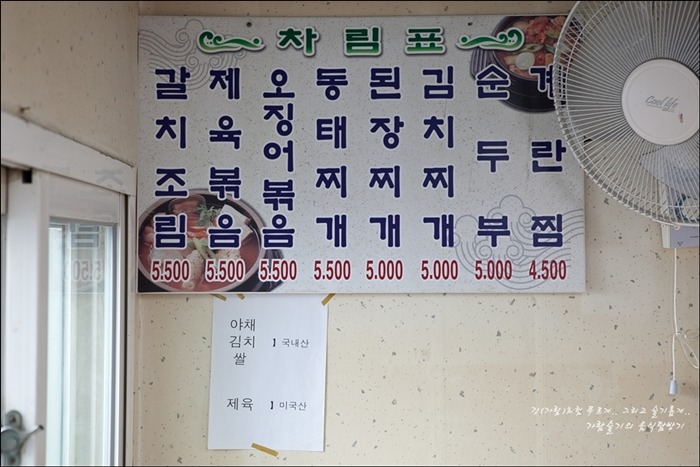 차림표
갈치조림 5.500
제육볶음 5.500
오징어볶음 5.500
동태찌개 5.500
된장찌개 5.000
김치찌개 5.000
순두부 5.000
계란찜 4.500
야채
김치 】국내산
쌀
제육 】미국산
Cool life
가람슬기의 음식탐방기